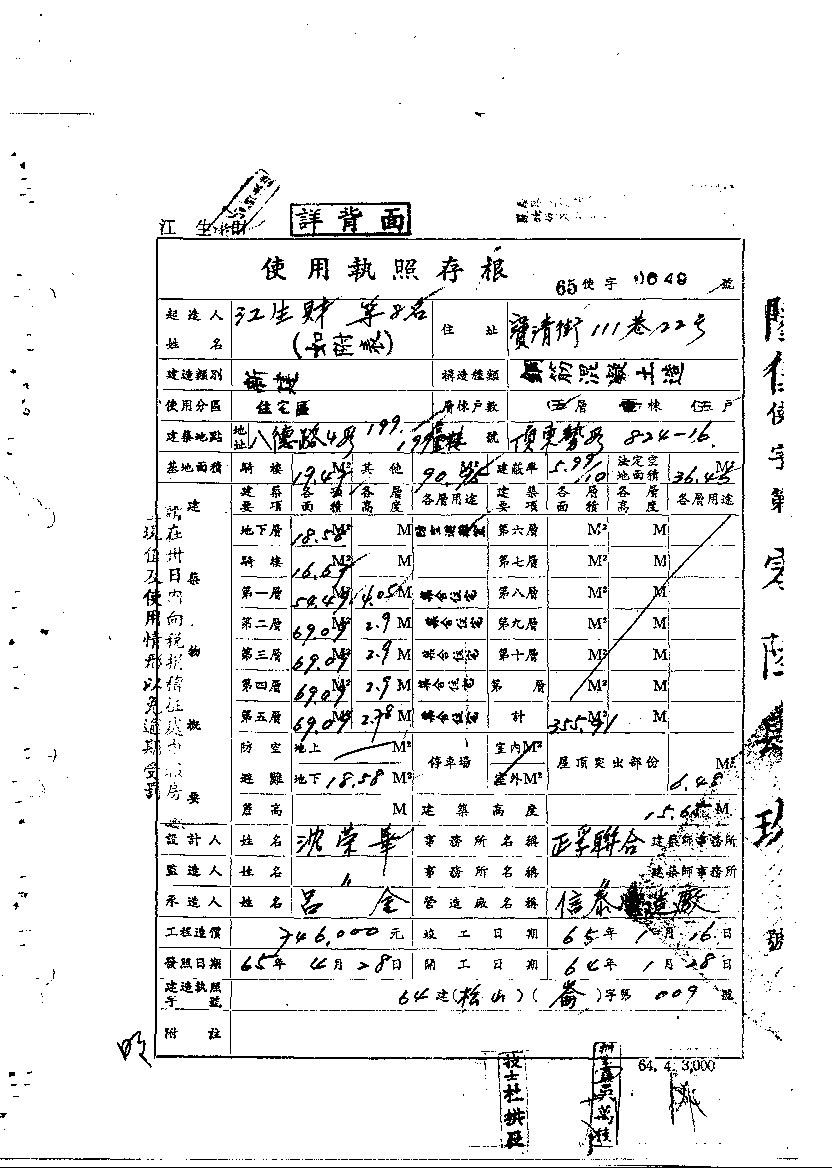 詳背面
江生財
使用執照存根
65使字0649號
起造人姓名 江生財等8名(如附表) 住址 寶清街111巷22号
建造類別 新建 構造種類 鋼筋混凝土造
使用分區 住宅區 層棟戶數 伍層 棟 伍戶
建築地點 地址 八德路4段199 號 頂東勢段 824-16
基地面積 騎樓 19.47 M² 其他 90.95 M² 建蔽率 5.99/10 法定空地面積 36.45 M²
建築要項 各層面積 各層高度 各層用途 建築要項 各層面積 各層高度 各層用途
建築物概要
地下層 18.58 M² M 第六層 M² M
騎樓 16.67 M² M 第七層 M² M
第一層 54.49 M² 4.05 M 集合住宅 第八層 M² M
第二層 69.09 M² 2.9 M 集合住宅 第九層 M² M
第三層 69.09 M² 2.9 M 集合住宅 第十層 M² M
第四層 69.09 M² 2.9 M 集合住宅 第 層 M² M
第五層 69.09 M² 2.78 M 集合住宅 計 355.91 M² M
防空避難 地上 M² 停車場 室內M² 屋頂突出部份 6.48 M²
地下 18.58 M² 室外M²
簷高 M 建築高度 15.65 M
設計人 姓名 沈榮華 事務所名稱 正孚聯合建築師事務所
監造人 姓名 〃 事務所名稱 建築師事務所
承造人 姓名 呂全 營造廠名稱 信泰營造廠
工程造價 746,000元 竣工日期 65年1月16日
發照日期 65年4月28日 開工日期 64年1月28日
建造執照字號 64建(松山)(崙)字第009號
附註
64. 4. 3,000
技士杜
使字第
號